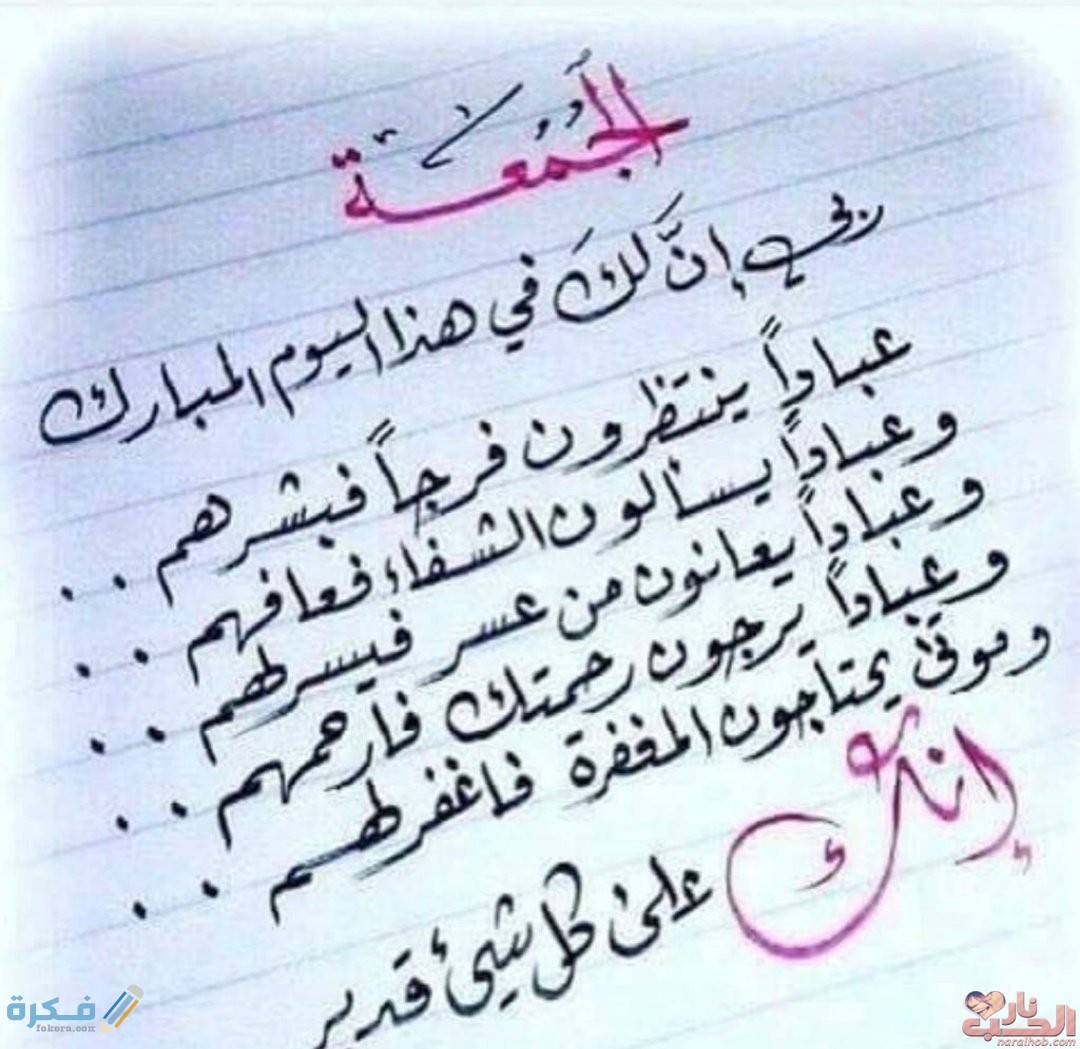 الجُمُعَة
ربي إنَّ لكَ في هذا اليوم المبارك
عباداً ينتظرون فرجاً فبشرهم . .
وعباداً يسألون الشفاء فعافهم . .
وعباداً يعانون من عسر فيسر لهم . .
وعباداً يرجون رحمتك فارحمهم . .
وموتى يحتاجون المغفرة فاغفر لهم . .
إنك
على كل شيئ قدير
فكرة
fokera.com
نار الحب
naralhob.com